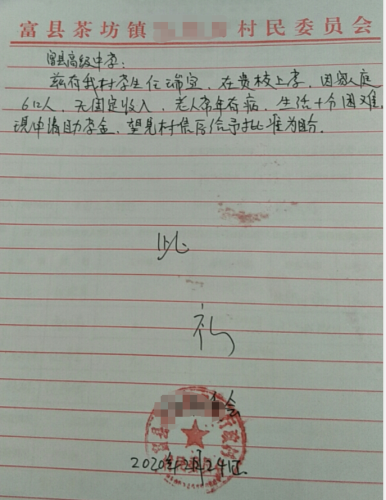 富县茶坊镇 村民委员会
富县高级中学:
兹有我村学生任瑞宜,在贵校上学,因家庭
6口人,无固定收入,老人常年有病,生活十分困难,
现申请助学金,望见村信后给予批准为盼.
此
礼
会
2020年12月24日.